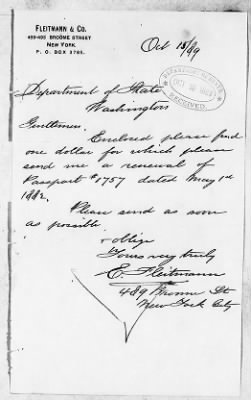 FLEITMANN & CO.
489-495 BROOME STREET
NEW YORK.
P. O. BOX 3785.
Oct 15/89
DEPARTMENT OF STATE
OCT 16 1889
RECEIVED
Department of State
Washington
Gentlemen,
Enclosed please find
one dollar for which please
send me a renewal of
Passport #1757 dated May 1st
1882.
Please send as soon
as possible
& oblige
Yours very truly
E. Fleitmann
489 Broome St
New York City